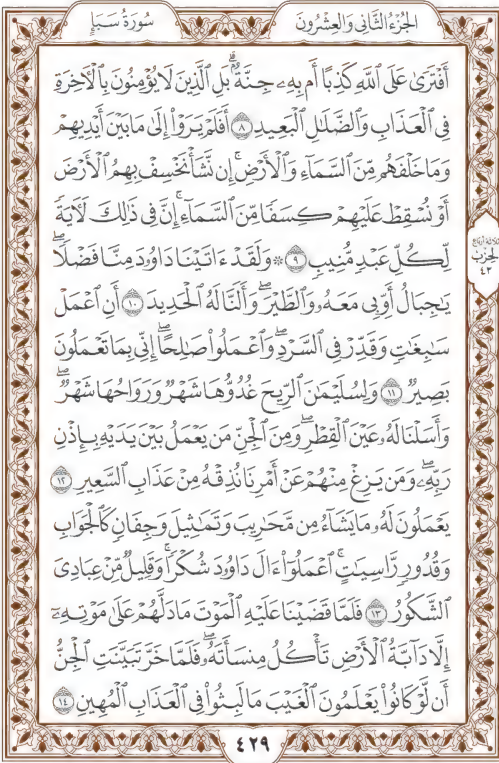 الجزء الثاني والعشرون
سورة سبإ
أَفْتَرَىٰ عَلَى ٱللَّهِ كَذِبًا أَم بِهِۦ جِنَّةٌۢ ۗ بَلِ ٱلَّذِينَ لَا يُؤْمِنُونَ بِٱلْـَٔاخِرَةِ
فِى ٱلْعَذَابِ وَٱلضَّلَٰلِ ٱلْبَعِيدِ ٨ أَفَلَمْ يَرَوْا۟ إِلَىٰ مَا بَيْنَ أَيْدِيهِمْ
وَمَا خَلْفَهُم مِّنَ ٱلسَّمَآءِ وَٱلْأَرْضِ ۚ إِن نَّشَأْ نَخْسِفْ بِهِمُ ٱلْأَرْضَ
أَوْ نُسْقِطْ عَلَيْهِمْ كِسَفًا مِّنَ ٱلسَّمَآءِ ۚ إِنَّ فِى ذَٰلِكَ لَـَٔايَةً
لِّكُلِّ عَبْدٍ مُّنِيبٍ ٩ ۞ وَلَقَدْ ءَاتَيْنَا دَاوُۥدَ مِنَّا فَضْلًا ۖ
يَٰجِبَالُ أَوِّبِى مَعَهُۥ وَٱلطَّيْرَ ۖ وَأَلَنَّا لَهُ ٱلْحَدِيدَ ١٠ أَنِ ٱعْمَلْ
سَٰبِغَٰتٍ وَقَدِّرْ فِى ٱلسَّرْدِ ۖ وَٱعْمَلُوا۟ صَٰلِحًا ۖ إِنِّى بِمَا تَعْمَلُونَ
بَصِيرٌ ١١ وَلِسُلَيْمَٰنَ ٱلرِّيحَ غُدُوُّهَا شَهْرٌ وَرَوَاحُهَا شَهْرٌ ۖ
وَأَسَلْنَا لَهُۥ عَيْنَ ٱلْقِطْرِ ۖ وَمِنَ ٱلْجِنِّ مَن يَعْمَلُ بَيْنَ يَدَيْهِ بِإِذْنِ
رَبِّهِۦ ۖ وَمَن يَزِغْ مِنْهُمْ عَنْ أَمْرِنَا نُذِقْهُ مِنْ عَذَابِ ٱلسَّعِيرِ ١٢
يَعْمَلُونَ لَهُۥ مَا يَشَآءُ مِن مَّحَٰرِيبَ وَتَمَٰثِيلَ وَجِفَانٍ كَٱلْجَوَابِ
وَقُدُورٍ رَّاسِيَٰتٍ ۚ ٱعْمَلُوٓا۟ ءَالَ دَاوُۥدَ شُكْرًا ۚ وَقَلِيلٌ مِّنْ عِبَادِىَ
ٱلشَّكُورُ ١٣ فَلَمَّا قَضَيْنَا عَلَيْهِ ٱلْمَوْتَ مَا دَلَّهُمْ عَلَىٰ مَوْتِهِۦٓ
إِلَّا دَآبَّةُ ٱلْأَرْضِ تَأْكُلُ مِنسَأَتَهُۥ ۖ فَلَمَّا خَرَّ تَبَيَّنَتِ ٱلْجِنُّ
أَن لَّوْ كَانُوا۟ يَعْلَمُونَ ٱلْغَيْبَ مَا لَبِثُوا۟ فِى ٱلْعَذَابِ ٱلْمُهِينِ ١٤
ثلاثة أرباع
الحزب
٤٣
٤٢٩